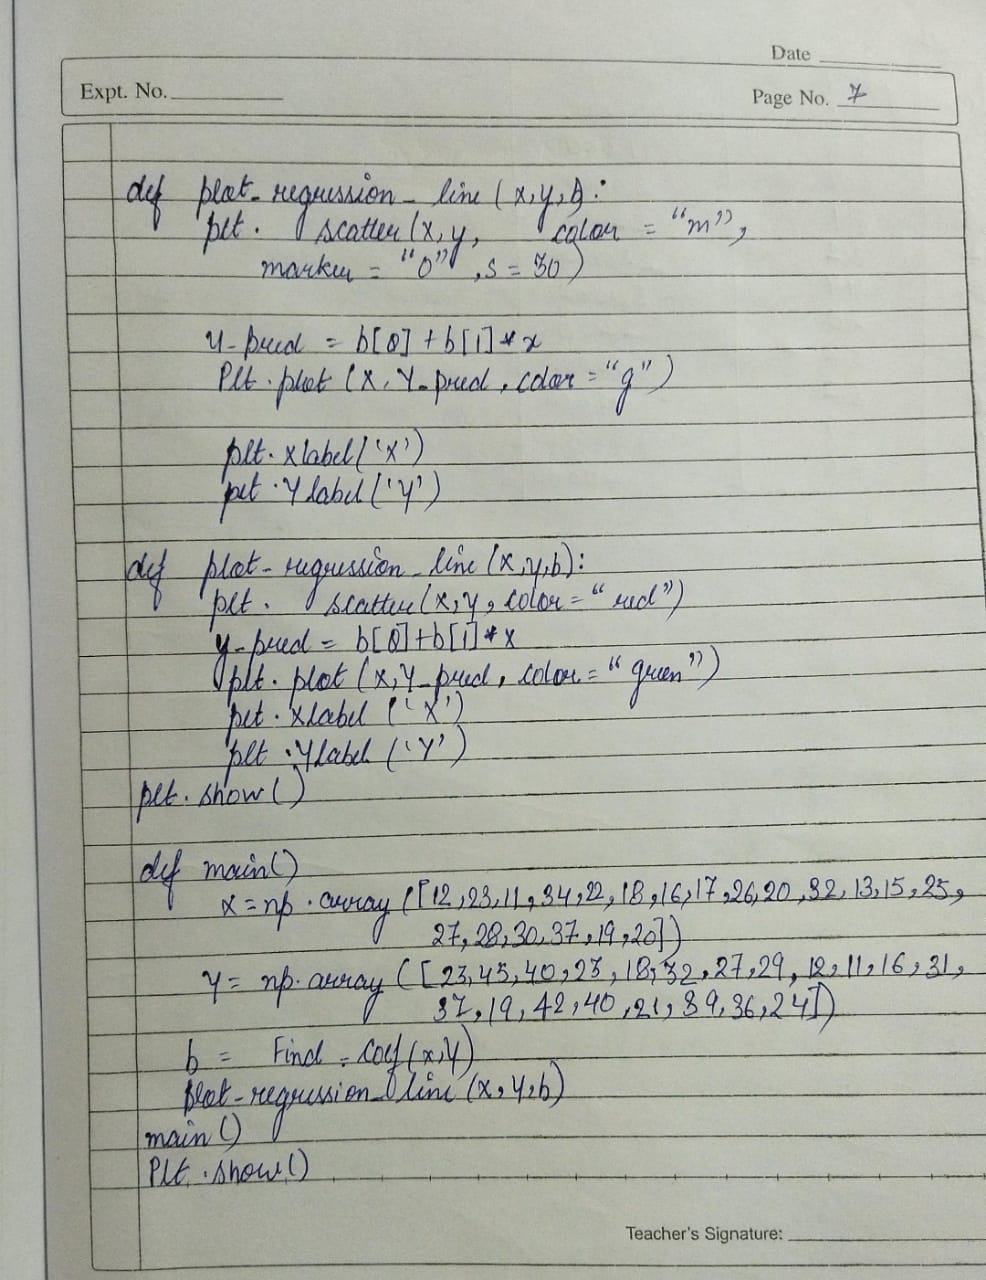 Date
Expt. No.
Page No. 7
def plot_regression_line (x,y,b):
plt. scatter (x,y, color = "m",
marker = "o", s = 30)
y_pred = b[0] + b[1] * x
Plt. plot (x, y_pred, color = "g")
plt. xlabel ('x')
plt. Ylabel ('y')
def plot_regression_line (x,y,b):
plt. scatter (x,y, color = "red")
y_pred = b[0] + b[1] * x
plt. plot (x, y_pred, color = "green")
plt. xlabel ('X')
plt. Ylabel ('Y')
plt. show ()
def main()
x = np. array ([12,23,11,34,22,18,16,17,26,20,32,13,15,25,
27,28,30,37,19,20])
y = np. array ([23,45,40,23,18,32,27,29,12,11,16,31,
37,19,42,40,21,39,36,24])
b = Find_Coef (x,y)
plot_regression_line (x,y,b)
main ()
Plt. show ()
Teacher's Signature: